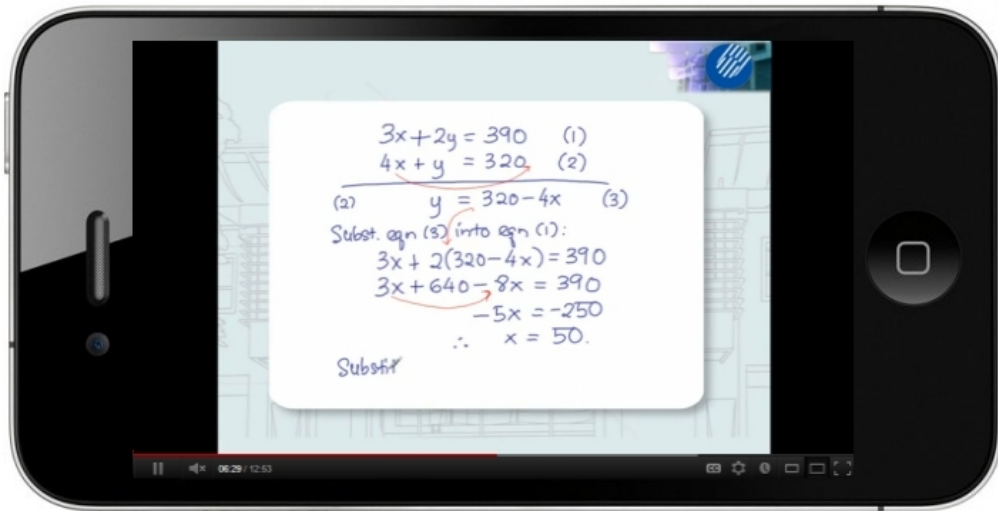 3x + 2y = 390 (1)
4x + y = 320 (2)
(2) y = 320 - 4x (3)
Subst. eqn (3) into eqn (1):
3x + 2(320 - 4x) = 390
3x + 640 - 8x = 390
-5x = -250
∴ x = 50.
Substit
06:29 / 12:53
CC